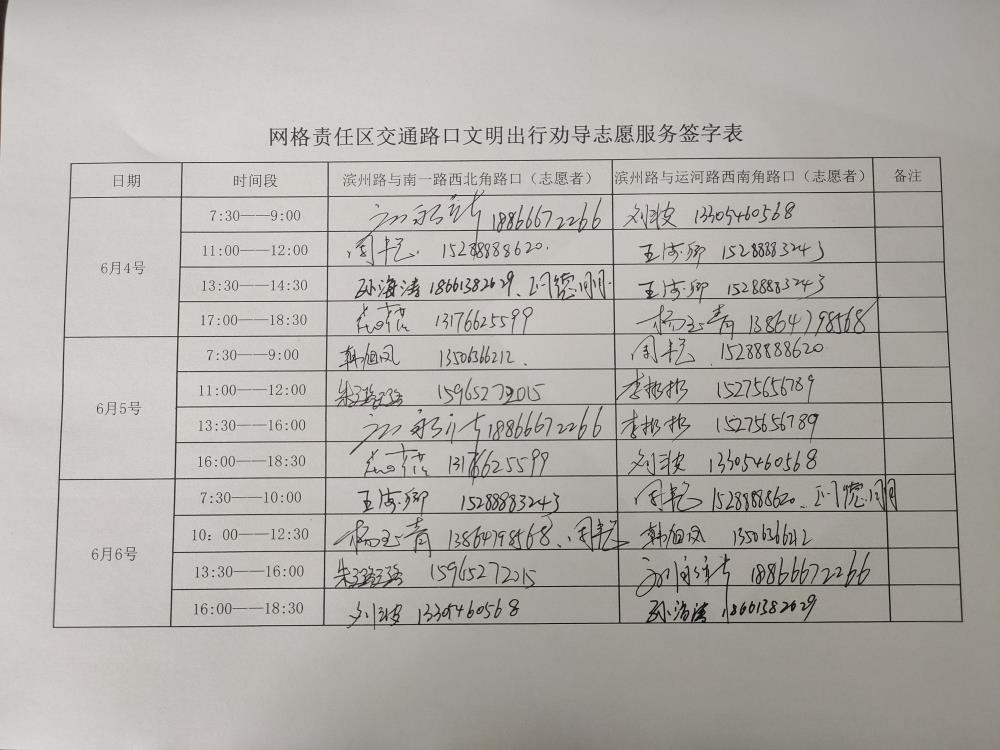 网格责任区交通路口文明出行劝导志愿服务签字表
日期 时间段 滨州路与南一路西北角路口（志愿者） 滨州路与运河路西南角路口（志愿者） 备注
6月4号
7:30——9:00 18866672266 刘波 13305460568
11:00——12:00 周艳 15288888620. 王海卿 15288883243
13:30——14:30 孙海涛 18661382629、 王海卿 15288883243
17:00——18:30 13176625599 杨玉青 13864798568
6月5号
7:30——9:00 韩旭风 13506366212. 周艳 15288888620
11:00——12:00 朱 15965272015 李彬彬 15275656789
13:30——16:00 18866672266 李彬彬 15275656789
16:00——18:30 13176625599 刘波 13305460568
6月6号
7:30——10:00 王海卿 15288883243 周艳 15288888620.
10：00——12:30 杨玉青 13864798568、周艳 韩旭风 13506366212
13:30——16:00 朱 15965272015 18866672266
16:00——18:30 刘波 13305460568 孙海涛 18661382629